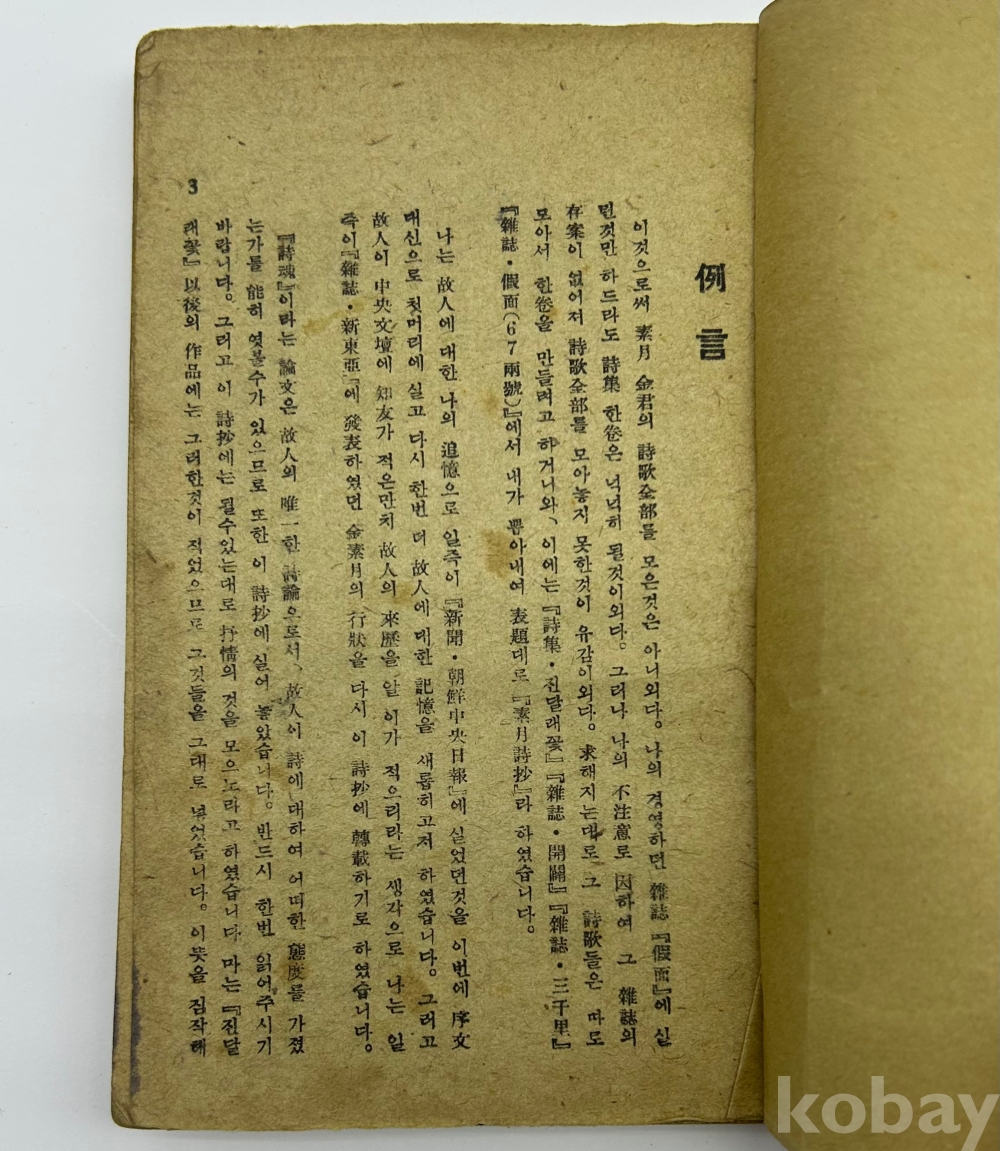 例言
이것으로써 素月 金君의 詩歌全部를 모은것은 아니외다. 나의 경영하던 雜誌『假面』에 실
린것만 하드라도 詩集 한卷은 넉넉히 될것이외다. 그러나 나의 不注意로 因하여 그 雜誌의
存案이 없어저 詩歌全部를 모아놓지 못한것이 유감이외다. 求해지는대로 그 詩歌들은 따로
모아서 한卷을 만들려고 하거니와, 이에는『詩集・진달래꽃』『雜誌・開闢』『雜誌・三千里』
『雜誌・假面(67兩號)』에서 내가 뽑아내여 表題대로『素月詩抄』라 하였습니다.
나는 故人에 대한 나의 追憶으로 일즉이『新聞・朝鮮中央日報』에 실었던것을 이번에 序文
대신으로 첫머리에 실고 다시 한번 더 故人에 대한 記憶을 새롭히고저 하였습니다. 그러고
故人이 中央文壇에 知友가 적은만치 故人의 來歷을 알 이가 적으리라는 생각으로 나는 일
즉이『雜誌・新東亞』에 發表하였던 金素月의 行狀을 다시 이 詩抄에 轉載하기로 하였습니다.
『詩魂』이라는 論文은 故人의 唯一한 詩論으로서, 故人이 詩에 대하여 어떠한 態度를 가졌
는가를 能히 엿볼수가 있으므로 또한 이 詩抄에 실어 놓았습니다. 반드시 한번 읽어주시기
바랍니다. 그러고 이 詩抄에는 될수있는대로 抒情의 것을 모으노라고 하였습니다 마는『진달
래꽃』以後의 作品에는 그러한것이 적었으므로 그것들을 그대로 넣었습니다. 이뜻을 짐작해
3
kobay